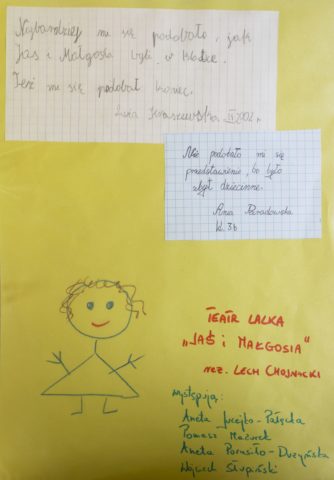 Najbardziej mi się podobało, jak
Jaś i Małgosia byli w klatce.
Też mi się podobał koniec.
2002r.
Nie podobało mi się
przedstawienie, bo było
zbyt dziecinne.
Ania
kl. 3b
TEATR LALKA
„JAŚ i MAŁGOSIA"
reż. LECH CHOJNACKI
występują:
Aneta Jucejko-Pałęcka
Tomasz Mazurek
Aneta Płuszka
Wojciech Słupiński